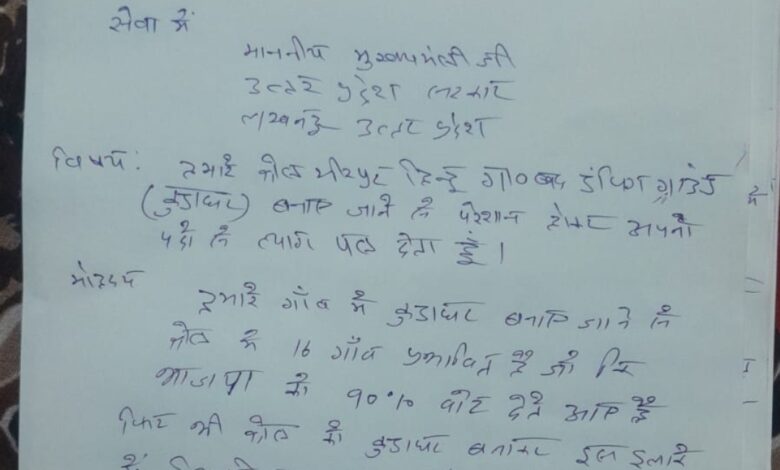 सेवा में
माननीय मुख्यमंत्री जी
उत्तर प्रदेश सरकार
लखनऊ उत्तर प्रदेश
विषय: हमारे क्षेत्र मीरपुर हिन्दू गा०बाद डंपिंग ग्राउंड
(कुडाघर) बनाए जाने से परेशान होकर अपनी में
पदो से त्याग पत्र देता हूं।
मोहदय
हमारे गाँव में कुडाघर बनाए जाने से
क्षेत्र में 16 गाँव प्रभावित है जो कि
भाजपा को 90% वोट देते आए है
फिर भी क्षेत्र में कुडाघर बनाकर इस इलाके
में